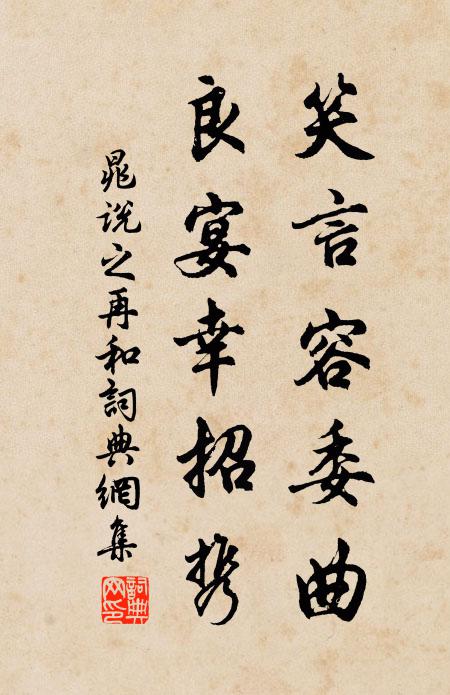 笑言容委曲
良宴幸招携
晁说之再和詞典網集
詞典網印